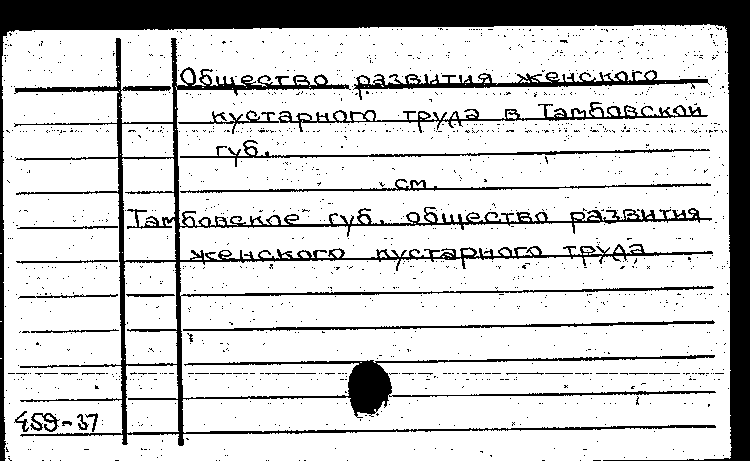 Общество развития женского
кустарного труда в Тамбовской
губ.
см.
Тамбовское губ. общество развития
женского кустарного труда
459-37